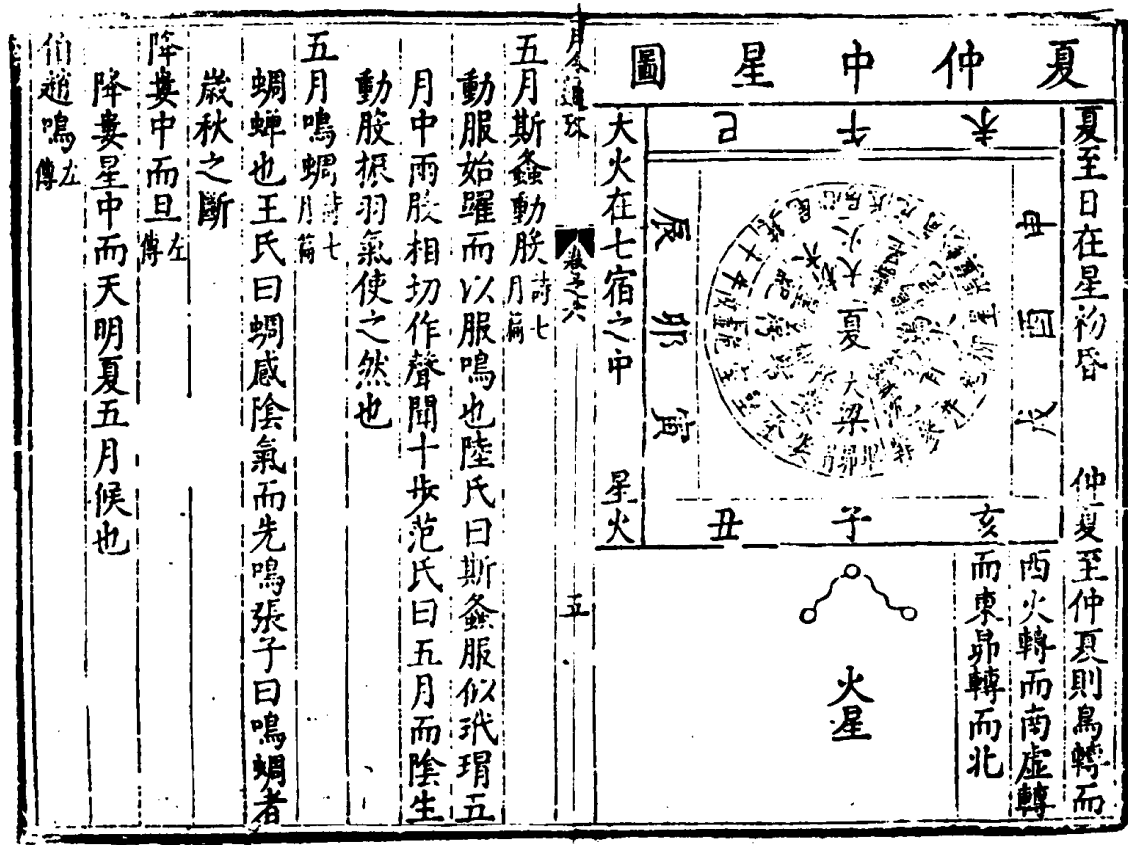 夏仲中星圖
夏至日在星初昏
仲夏至仲夏則鳥轉而
西火轉而南虛轉
而東昴轉而北
未午巳
申酉戌
辰卯寅
亥子丑
夏
大火
大梁
大火在七宿之中
星火
火星
月令通攷
卷之六
五
五月斯螽動股詩七月篇
動股始躍而以股鳴也陸氏曰斯螽股似玳瑁五
月中兩股相切作聲聞十步范氏曰五月而陰生
動股振羽氣使之然也
五月鳴蜩詩七月篇
蜩蟬也王氏曰蜩感陰氣而先鳴張子曰鳴蜩者
歲秋之斷
降婁中而旦左傳
降婁星中而天明夏五月候也
伯趙鳴左傳